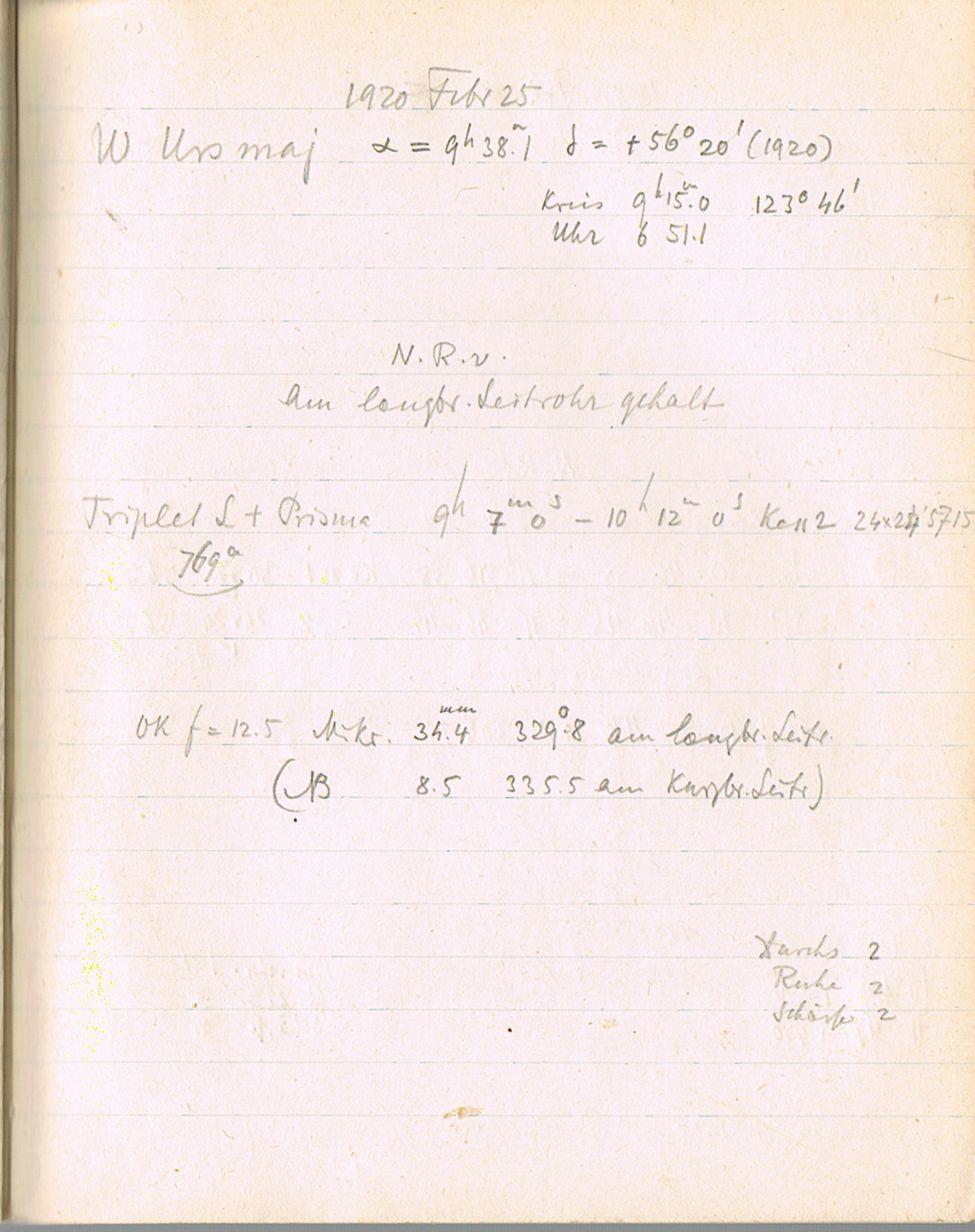 1920 Febr 25
W Urs maj α = 9h 38m.1 δ = +56° 20' (1920)
Kreis 9h 15m.0 123° 46'
Uhr 6 51.1
N. R. v.
am langbr. Leitrohr gehalt
Triplet L + Prisma 9h 7m 0s – 10h 12m 0s Kass 2 24×24 5715
769a
OK f = 12.5 Mikr. 34.4mm 329°.8 am langbr. Leitr.
(NB 8.5 335.5 am Kurzbr. Leitr)
Durchs 2
Ruhe 2
Schärfe 2